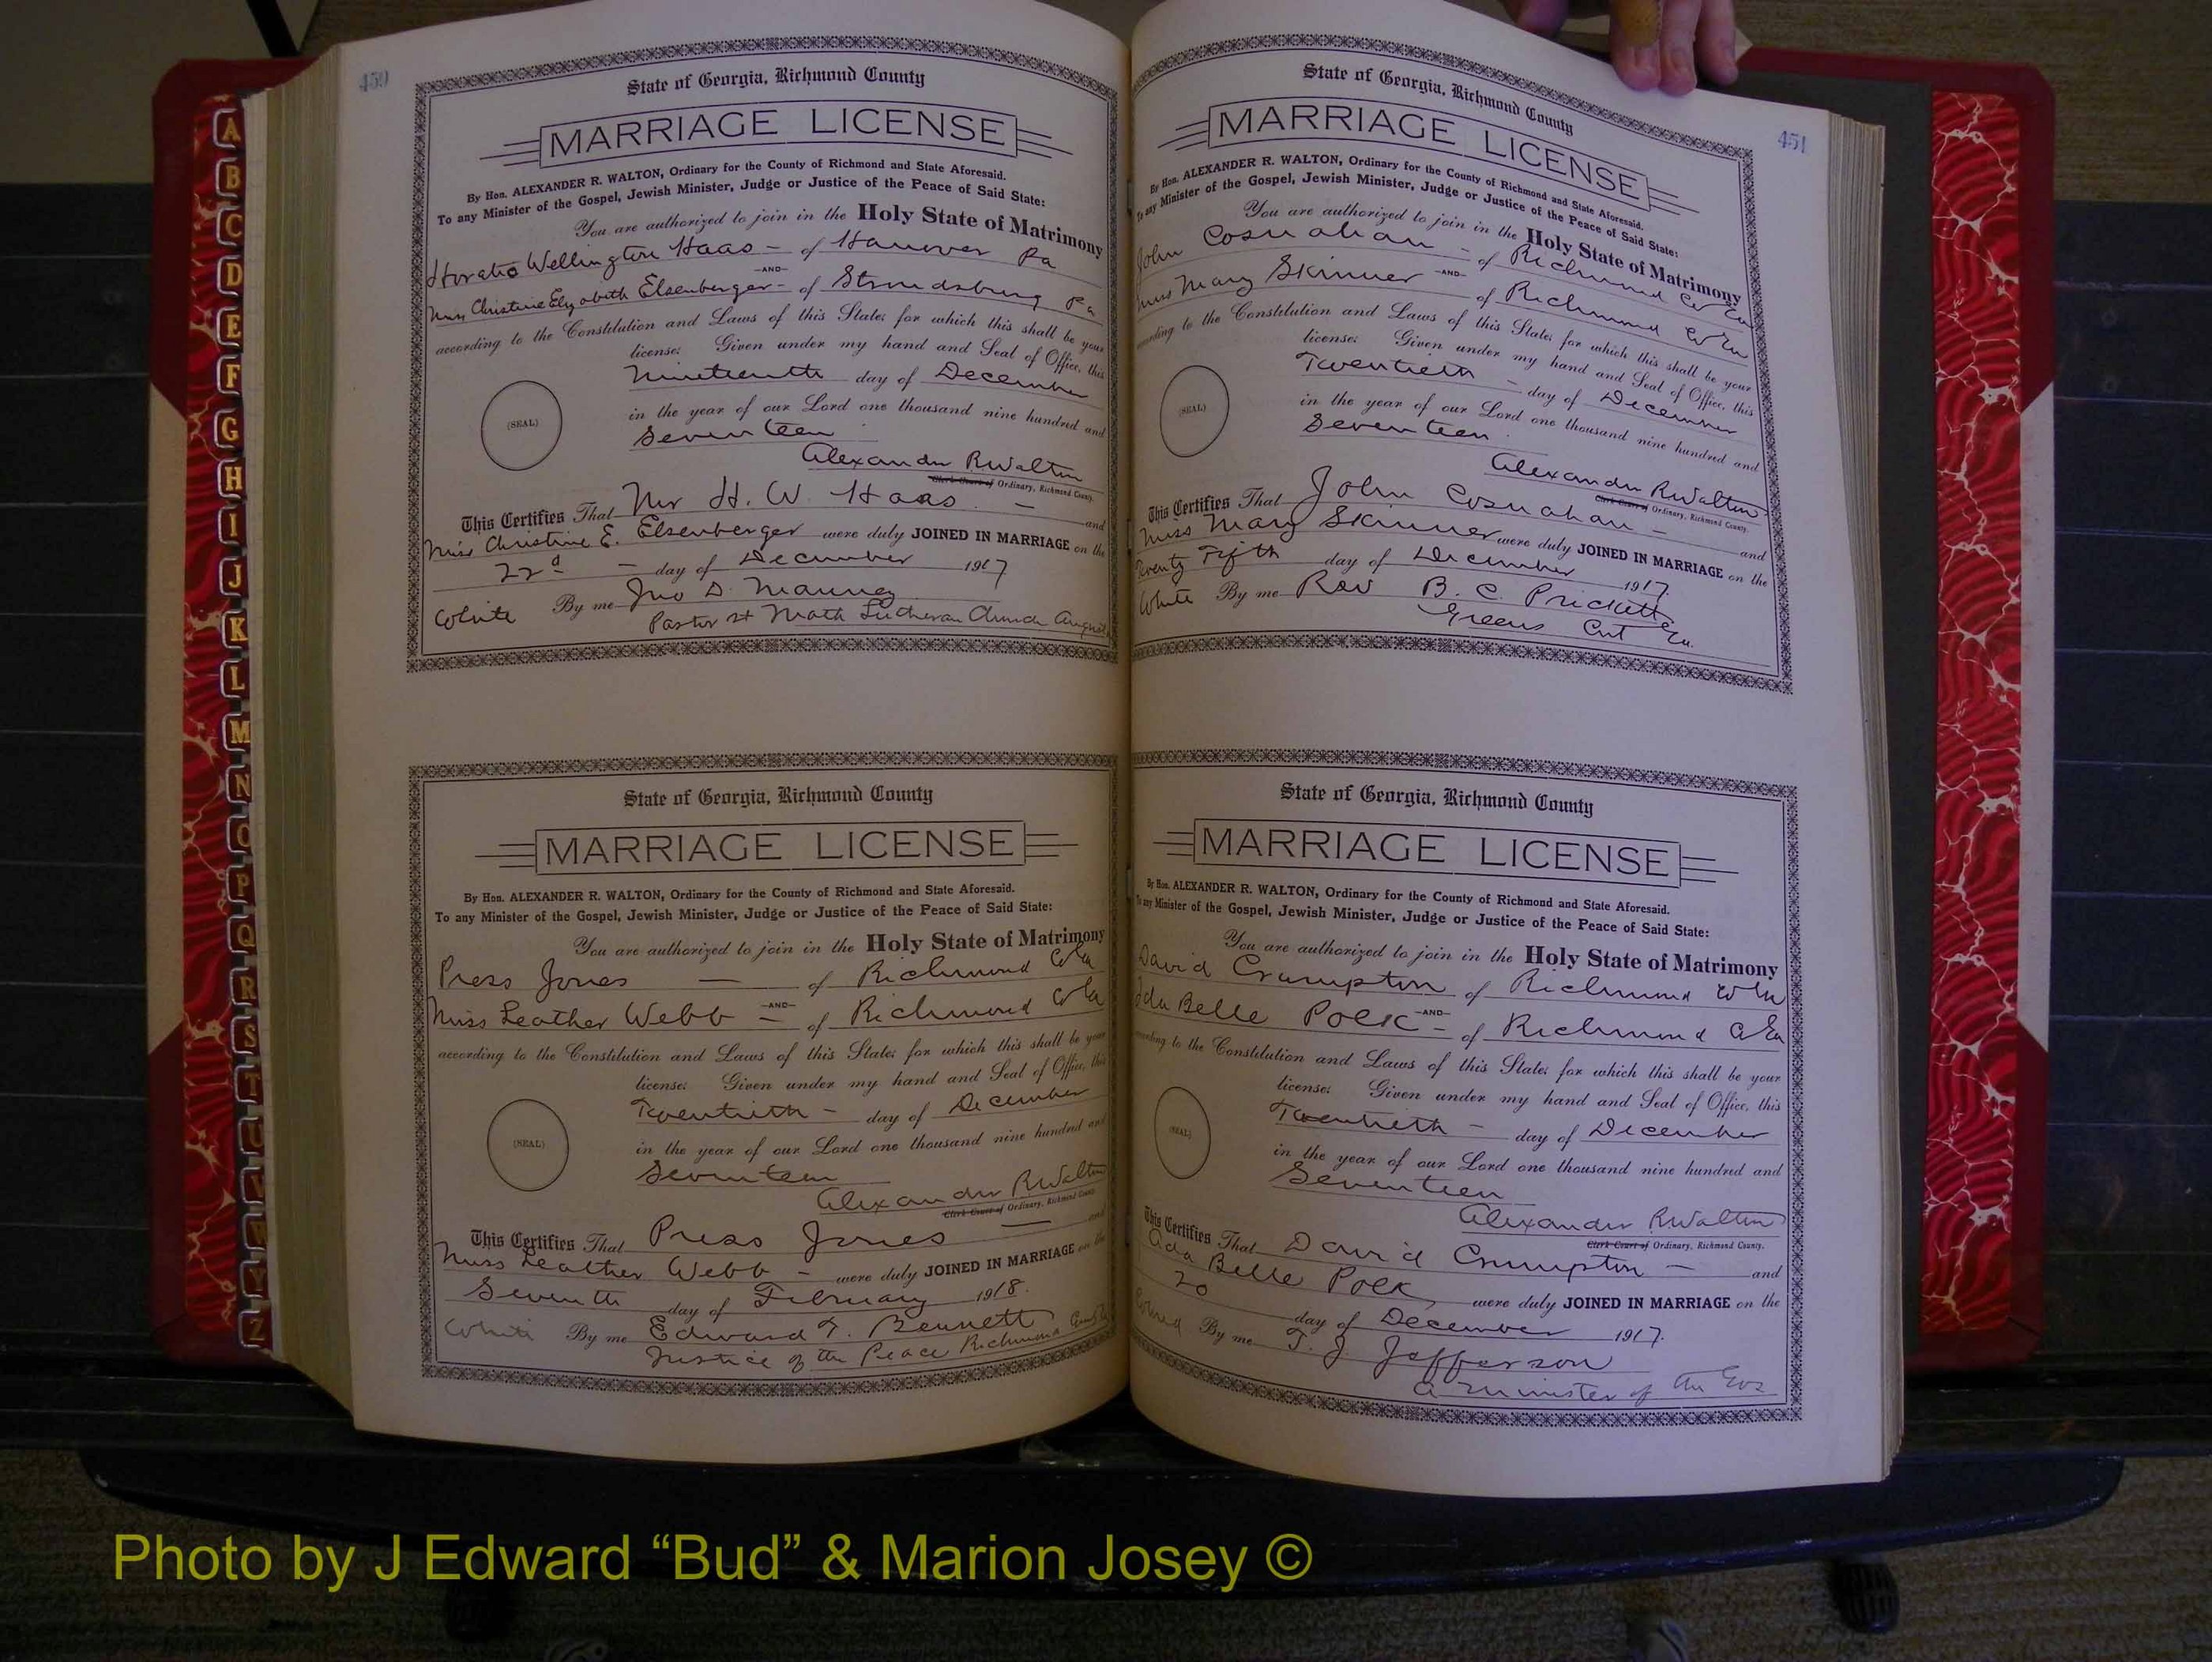 450
State of Georgia, Richmond County
MARRIAGE LICENSE
By Hon. ALEXANDER R. WALTON, Ordinary for the County of Richmond and State Aforesaid.
To any Minister of the Gospel, Jewish Minister, Judge or Justice of the Peace of Said State:
You are authorized to join in the Holy State of Matrimony
Horatio Wellington Haas - of Hanover Pa
-AND-
Miss Christine Elizabeth Elsenberger - of Stroudsburg Pa
according to the Constitution and Laws of this State; for which this shall be your
license: Given under my hand and Seal of Office, this
Nineteenth day of December
(SEAL)
in the year of our Lord one thousand nine hundred and
Seventeen
Alexander R Walton
Clerk Court of Ordinary, Richmond County.
This Certifies That Mr H. W. Haas - and
Miss Christine E. Elsenberger were duly JOINED IN MARRIAGE on the
22d - day of December 1917
White By me Jno D. Mauney
Pastor St Math Lutheran Church Augusta
State of Georgia, Richmond County
MARRIAGE LICENSE
By Hon. ALEXANDER R. WALTON, Ordinary for the County of Richmond and State Aforesaid.
To any Minister of the Gospel, Jewish Minister, Judge or Justice of the Peace of Said State:
You are authorized to join in the Holy State of Matrimony
Press Jones - of Richmond Co Ga
-AND-
Miss Leather Webb - of Richmond Co Ga
according to the Constitution and Laws of this State; for which this shall be your
license: Given under my hand and Seal of Office, this
Twentieth - day of December
(SEAL)
in the year of our Lord one thousand nine hundred and
Seventeen
Alexander R Walton
Clerk Court of Ordinary, Richmond County.
This Certifies That Press Jones - and
Miss Leather Webb - were duly JOINED IN MARRIAGE on the
Seventh day of February 1918.
White By me Edward T. Bennett
Justice of the Peace Richmond
451
State of Georgia, Richmond County
MARRIAGE LICENSE
By Hon. ALEXANDER R. WALTON, Ordinary for the County of Richmond and State Aforesaid.
To any Minister of the Gospel, Jewish Minister, Judge or Justice of the Peace of Said State:
You are authorized to join in the Holy State of Matrimony
John Cosnahan - of Richmond Co Ga
-AND-
Miss Mary Skinner of Richmond Co Ga
according to the Constitution and Laws of this State; for which this shall be your
license: Given under my hand and Seal of Office, this
Twentieth - day of December
(SEAL)
in the year of our Lord one thousand nine hundred and
Seventeen.
Alexander R Walton
Clerk Court of Ordinary, Richmond County.
This Certifies That John Cosnahan - and
Miss Mary Skinner were duly JOINED IN MARRIAGE on the
Twenty Fifth day of December 1917.
White By me Rev B. C. Prickett
Greens Cut Ga.
State of Georgia, Richmond County
MARRIAGE LICENSE
By Hon. ALEXANDER R. WALTON, Ordinary for the County of Richmond and State Aforesaid.
To any Minister of the Gospel, Jewish Minister, Judge or Justice of the Peace of Said State:
You are authorized to join in the Holy State of Matrimony
David Crumpton of Richmond Co Ga
-AND-
Ada Belle Polk - of Richmond Co Ga
according to the Constitution and Laws of this State; for which this shall be your
license: Given under my hand and Seal of Office, this
Twentieth - day of December
(SEAL)
in the year of our Lord one thousand nine hundred and
Seventeen
Alexander R Walton
Clerk Court of Ordinary, Richmond County.
This Certifies That David Crumpton - and
Ada Belle Polk, were duly JOINED IN MARRIAGE on the
20 day of December 1917.
Colored By me T. J. Jefferson
a minister of the Gos
A
B
C
D
E
F
G
H
I
J
K
L
M
N
O
P
Q
R
S
T
U
V
W
Y
Z
Photo by J Edward “Bud” & Marion Josey ©